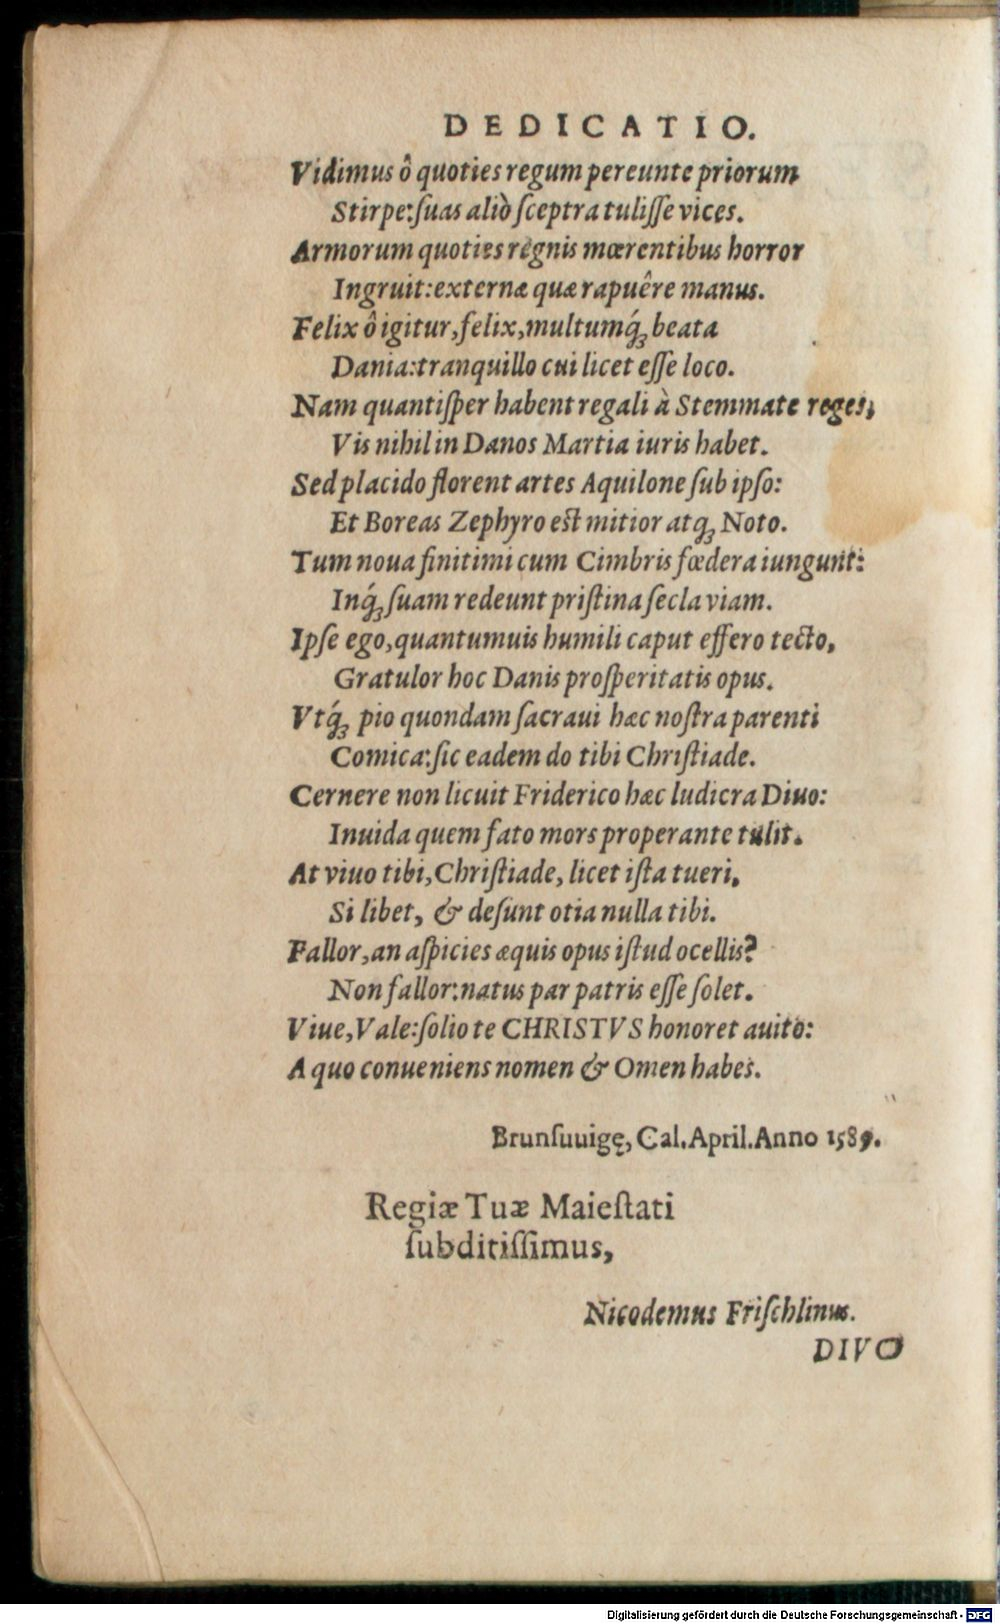 DEDICATIO.
Vidimus ô quoties regum pereunte priorum
Stirpe: ſuas aliò ſceptra tuliſſe vices.
Armorum quoties regnis mœrentibus horror
Ingruit: externæ quæ rapuêre manus.
Felix ô igitur, felix, multumq́ꝫ beata
Dania: tranquillo cui licet eſſe loco.
Nam quantiſper habent regali à Stemmate reges,
Vis nihil in Danos Martia iuris habet.
Sed placido florent artes Aquilone ſub ipſo:
Et Boreas Zephyro eſt mitior atqꝫ Noto.
Tum noua finitimi cum Cimbris fœdera iungunt:
Inq́ꝫ ſuam redeunt priſtina ſecla viam.
Ipſe ego, quantumuis humili caput effero tecto,
Gratulor hoc Danis proſperitatis opus.
Vtq́ꝫ pio quondam ſacraui hæc noſtra parenti
Comica: ſic eadem do tibi Chriſtiade.
Cernere non licuit Friderico hæc ludicra Diuo:
Inuida quem fato mors properante tulit.
At viuo tibi, Chriſtiade, licet iſta tueri,
Si libet, & deſunt otia nulla tibi.
Fallor, an aſpicies æquis opus iſtud ocellis?
Non fallor: natus par patris eſſe ſolet.
Viue, Vale: ſolio te CHRISTVS honoret auito:
A quo conueniens nomen & Omen habes.
Brunſuuigę, Cal. April. Anno 1589.
Regiæ Tuæ Maieſtati
ſubditiſſimus,
Nicodemus Friſchlinus.
DIVO
Digitalisierung gefördert durch die Deutsche Forschungsgemeinschaft - DFG